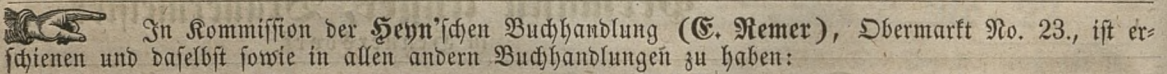 In Kommission der Heyn'schen Buchhandlung (E. Remer), Obermarkt No. 23., ist er-
schienen und daselbst sowie in allen andern Buchhandlungen zu haben: